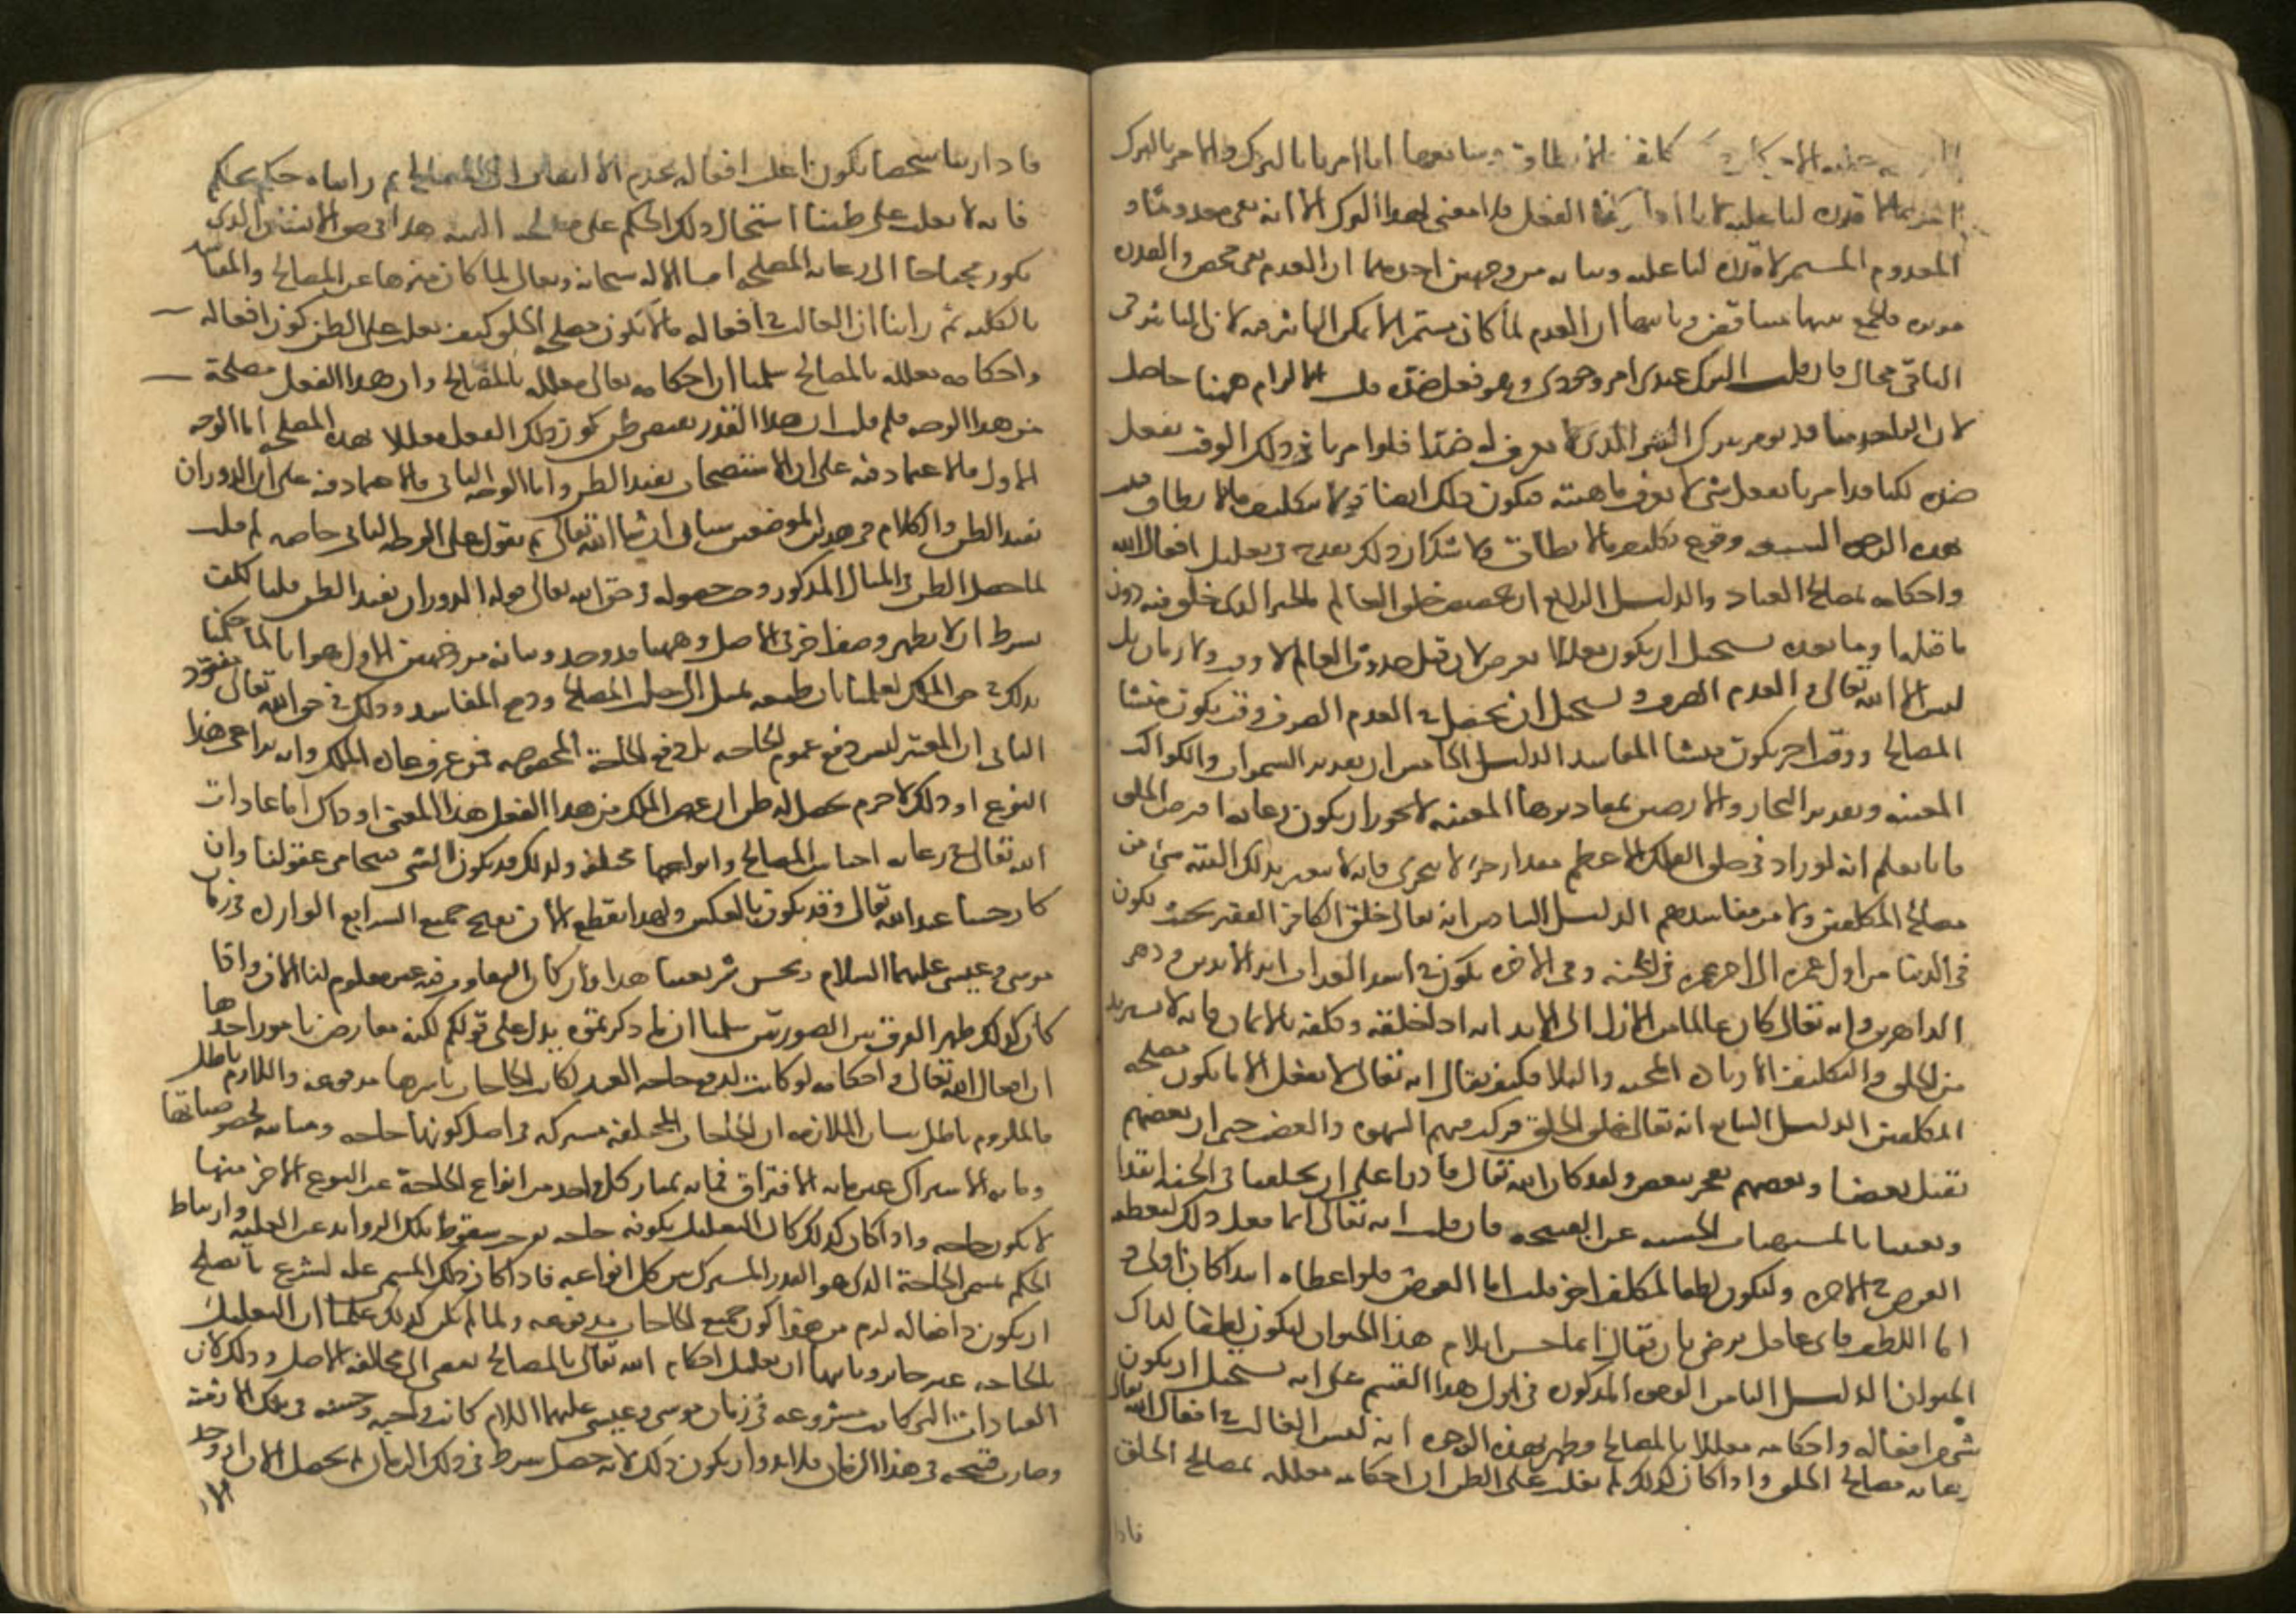 كانوا امرنا بالترك والامر بالترك
لا قدرة لنا عليه لانا اذا تركنا الفعل فلا معنى لهذا الترك الا انه بقى معدوما و
المعدوم المستمر لا قدرة لنا عليه وبيانه من وجهين احدهما ان العدم نفى محض والقدرة
موثرة فالجمع بينهما متناقض وثانيهما ان العدم لما كان مستمرا لا يمكن التاثير فيه لان التاثير فى
الباقى محال فان قلت الترك عندى امر وجودى وهو فعل ضده قلت الالزام ههنا حاصل
لان الواحد منا قد يومر بترك الشى الذى لا يعرف له ضدا فلو امرنا فى ذلك الوقت بفعل
ضده لكنا قد امرنا بفعل شى لا نعرف ماهيته فيكون ذلك ايضا تكليف ما لا يطاق فقد
هذه الوجوه السبعة وقوع تكليف ما لا يطاق ولا شك ان ذلك يقدح فى تعليل افعال الله
واحكامه بمصالح العباد والدليل الرابع ان تخصيص خلق العالم بالحيز الذى خلق فيه دون
ما قبله او ما بعده يستحيل ان يكون معللا بغرض لان قبل حدوث العالم لا وقت ولا زمان بل
ليس الا الله تعالى والعدم الصرف ويستحيل ان يحصل فى العدم الصرف وقت يكون منشا
المصالح ووقت اخر يكون منشا المفاسد الدليل الخامس ان تقدير السموات والكواكب
المعينة وتقدير البحار والارضين بمقاديرها المعينة لا يجوز ان يكون رعاية لغرض الخلق
فانا نعلم انه لو زاد فى خلق الفلك الاعظم مقدار جزء لا يتجزى فانه لا يتغير بذلك البتة شى من
مصالح المكلفين ولا من مفاسدهم الدليل السادس انه تعالى خلق الكافر الفقير بحيث يكون
فى الدنيا من اول عمره الى اخر عمره فى المحنة وفى الاخرة يكون فى اشد العذاب ابد الابدين ودهر
الداهرين وانه تعالى كان عالما من الازل الى الابد انه اذا خلقه وكلفه بالايمان فانه لا يستفيد
من الخلق والتكليف الا زيادة المحنة والبلا فكيف يقال انه تعالى لا يفعل الا ما يكون مصلحة
المكلفين الدليل السابع انه تعالى خلق الخلق وركب فيهم الشهوة والغضب حتى ان بعضهم
يقتل بعضا وبعضهم يفجر ببعض ولقد كان الله تعالى قادرا على ان يخلقنا فى الجنة ابتدا
ويغنينا بالمشتهيات الحسنة عن القبيحة فان قلت انه تعالى انما فعل ذلك ليعطيه
العوض فى الاخرة وليكون لطفا لمكلف اخر قلت اما العوض فلو اعطاه ابتدا كان اولى و
اما اللطف فاى عاقل يرضى بان يقال انما حسن ايلام هذا الحيوان ليكون لطفا لذاك
الحيوان الدليل الثامن الوجوه المذكورة فى اول هذا القسم على انه يستحيل ان يكون
شى من افعاله واحكامه معللا بالمصالح وظهر بهذه الوجوه انه ليس الغالب فى افعال الله تعالى
رعاية مصالح الخلق واذا كان كذلك لم يغلب على الظن ان احكامه معللة بمصالح الخلق
فاذا
فاذا راينا شخصا يكون اغلب افعاله عدم الالتفات الى المصالح ثم رايناه حكم بحكم
فانه لا يغلب على ظننا اشتمال ذلك الحكم على مصلحة البتة هذا فى حق الانسان الذى
يكون محتاجا الى رعاية المصلحة اما الاله سبحانه وتعالى لما كان منزها عن المصالح والمفاسد
بالكلية ثم راينا ان الغالب فى افعاله ما لا يكون مصلحة الخلق كيف يغلب على الظن كون افعاله
واحكامه معللة بالمصالح سلمنا ان احكامه تعالى معللة بالمصالح وان هذا الفعل مصلحة
من هذا الوجه فلم قلت ان هذا القدر يقتضى ظن كون ذلك الفعل معللا بهذه المصلحة اما الوجه
الاول فالاعتماد فيه على ان الاستصحاب يفيد الظن واما الوجه الثانى فالاعتماد فيه على ان الدوران
يفيد الظن والكلام فى هذين الموضعين سياتى ان شا الله تعالى ثم نقول على الوجه الثانى خاصة لم قلت
لما حصل الظن فى المثال المذكور وجب حصوله فى حق الله تعالى قوله الدوران يفيد الظن قلنا
بشرط ان لا يظهر وصف اخر فى الاصل وههنا قد وجد وبيانه من وجهين الاول هو انا انما حكمنا
بذلك فى حق الملك لعلمنا بان طبعه يميل الى جلب المصالح ودفع المفاسد وذلك فى حق الله تعالى مفقود
الثانى ان المعتبر ليس دفع عموم الحاجة بل دفع الحاجة المخصوصة فمن عرف عادة الملك وانه يراعى هذا
النوع او ذلك لا جرم يحصل له ظن ان غرض الملك من هذا الفعل هذا المعنى او ذاك اما عادات
الله تعالى فى رعاية اجناس المصالح وانواعها مختلفة ولذلك قد يكون الشى قبيحا فى عقولنا وان
كان حسنا عند الله تعالى وقد يكون بالعكس ولهذا نقطع الان بقبح جميع الشرايع الواردة فى زمان
موسى وعيسى عليهما السلام وبحسن شريعتنا هذا وان كان التفاوت فيه غير معلوم لنا الان واذا
كان كذلك ظهر الفرق بين الصورتين سلمنا ان ما ذكرتموه يدل على قولكم لكنه معارض بامور احدها
ان افعال الله تعالى واحكامه لو كانت لدفع حاجة العبد لكانت الحاجات باسرها مدفوعة واللازم باطل
فالملزوم باطل بيان الملازمة ان الحاجات المختلفة مشتركة فى اصل كونها حاجة ومتباينة بخصوصياتها
وما به الاشتراك غير ما به الافتراق فما به يمتاز كل واحد من انواع الحاجة عن النوع الاخر منها
لا يكون حاجة واذا كان كذلك كان التعليل بكونه حاجة يوجب سقوط تلك الزوايد عن العلية وارتباط
الحكم بمسمى الحاجة الذى هو القدر المشترك بين كل انواعه فاذا كان ذلك المسمى علة لشرع ما يصلح
ان يكون دافعا له لزم من هذا كون جميع الحاجات مدفوعة ولما لم يكن كذلك علمنا ان التعليل
بالحاجة غير جايز وثانيها ان تعليل احكام الله تعالى بالمصالح يفضى الى مخالفة الاصل وذلك لان
العبادات التى كانت مشروعة فى زمان موسى وعيسى عليهما السلام كانت واجبة وحسنة فى تلك الازمنة
وصارت قبيحة فى هذا الزمان فلا بد وان يكون ذلك لانه حصل شرط فى ذلك الزمان لم يحصل الان او وجد
الان